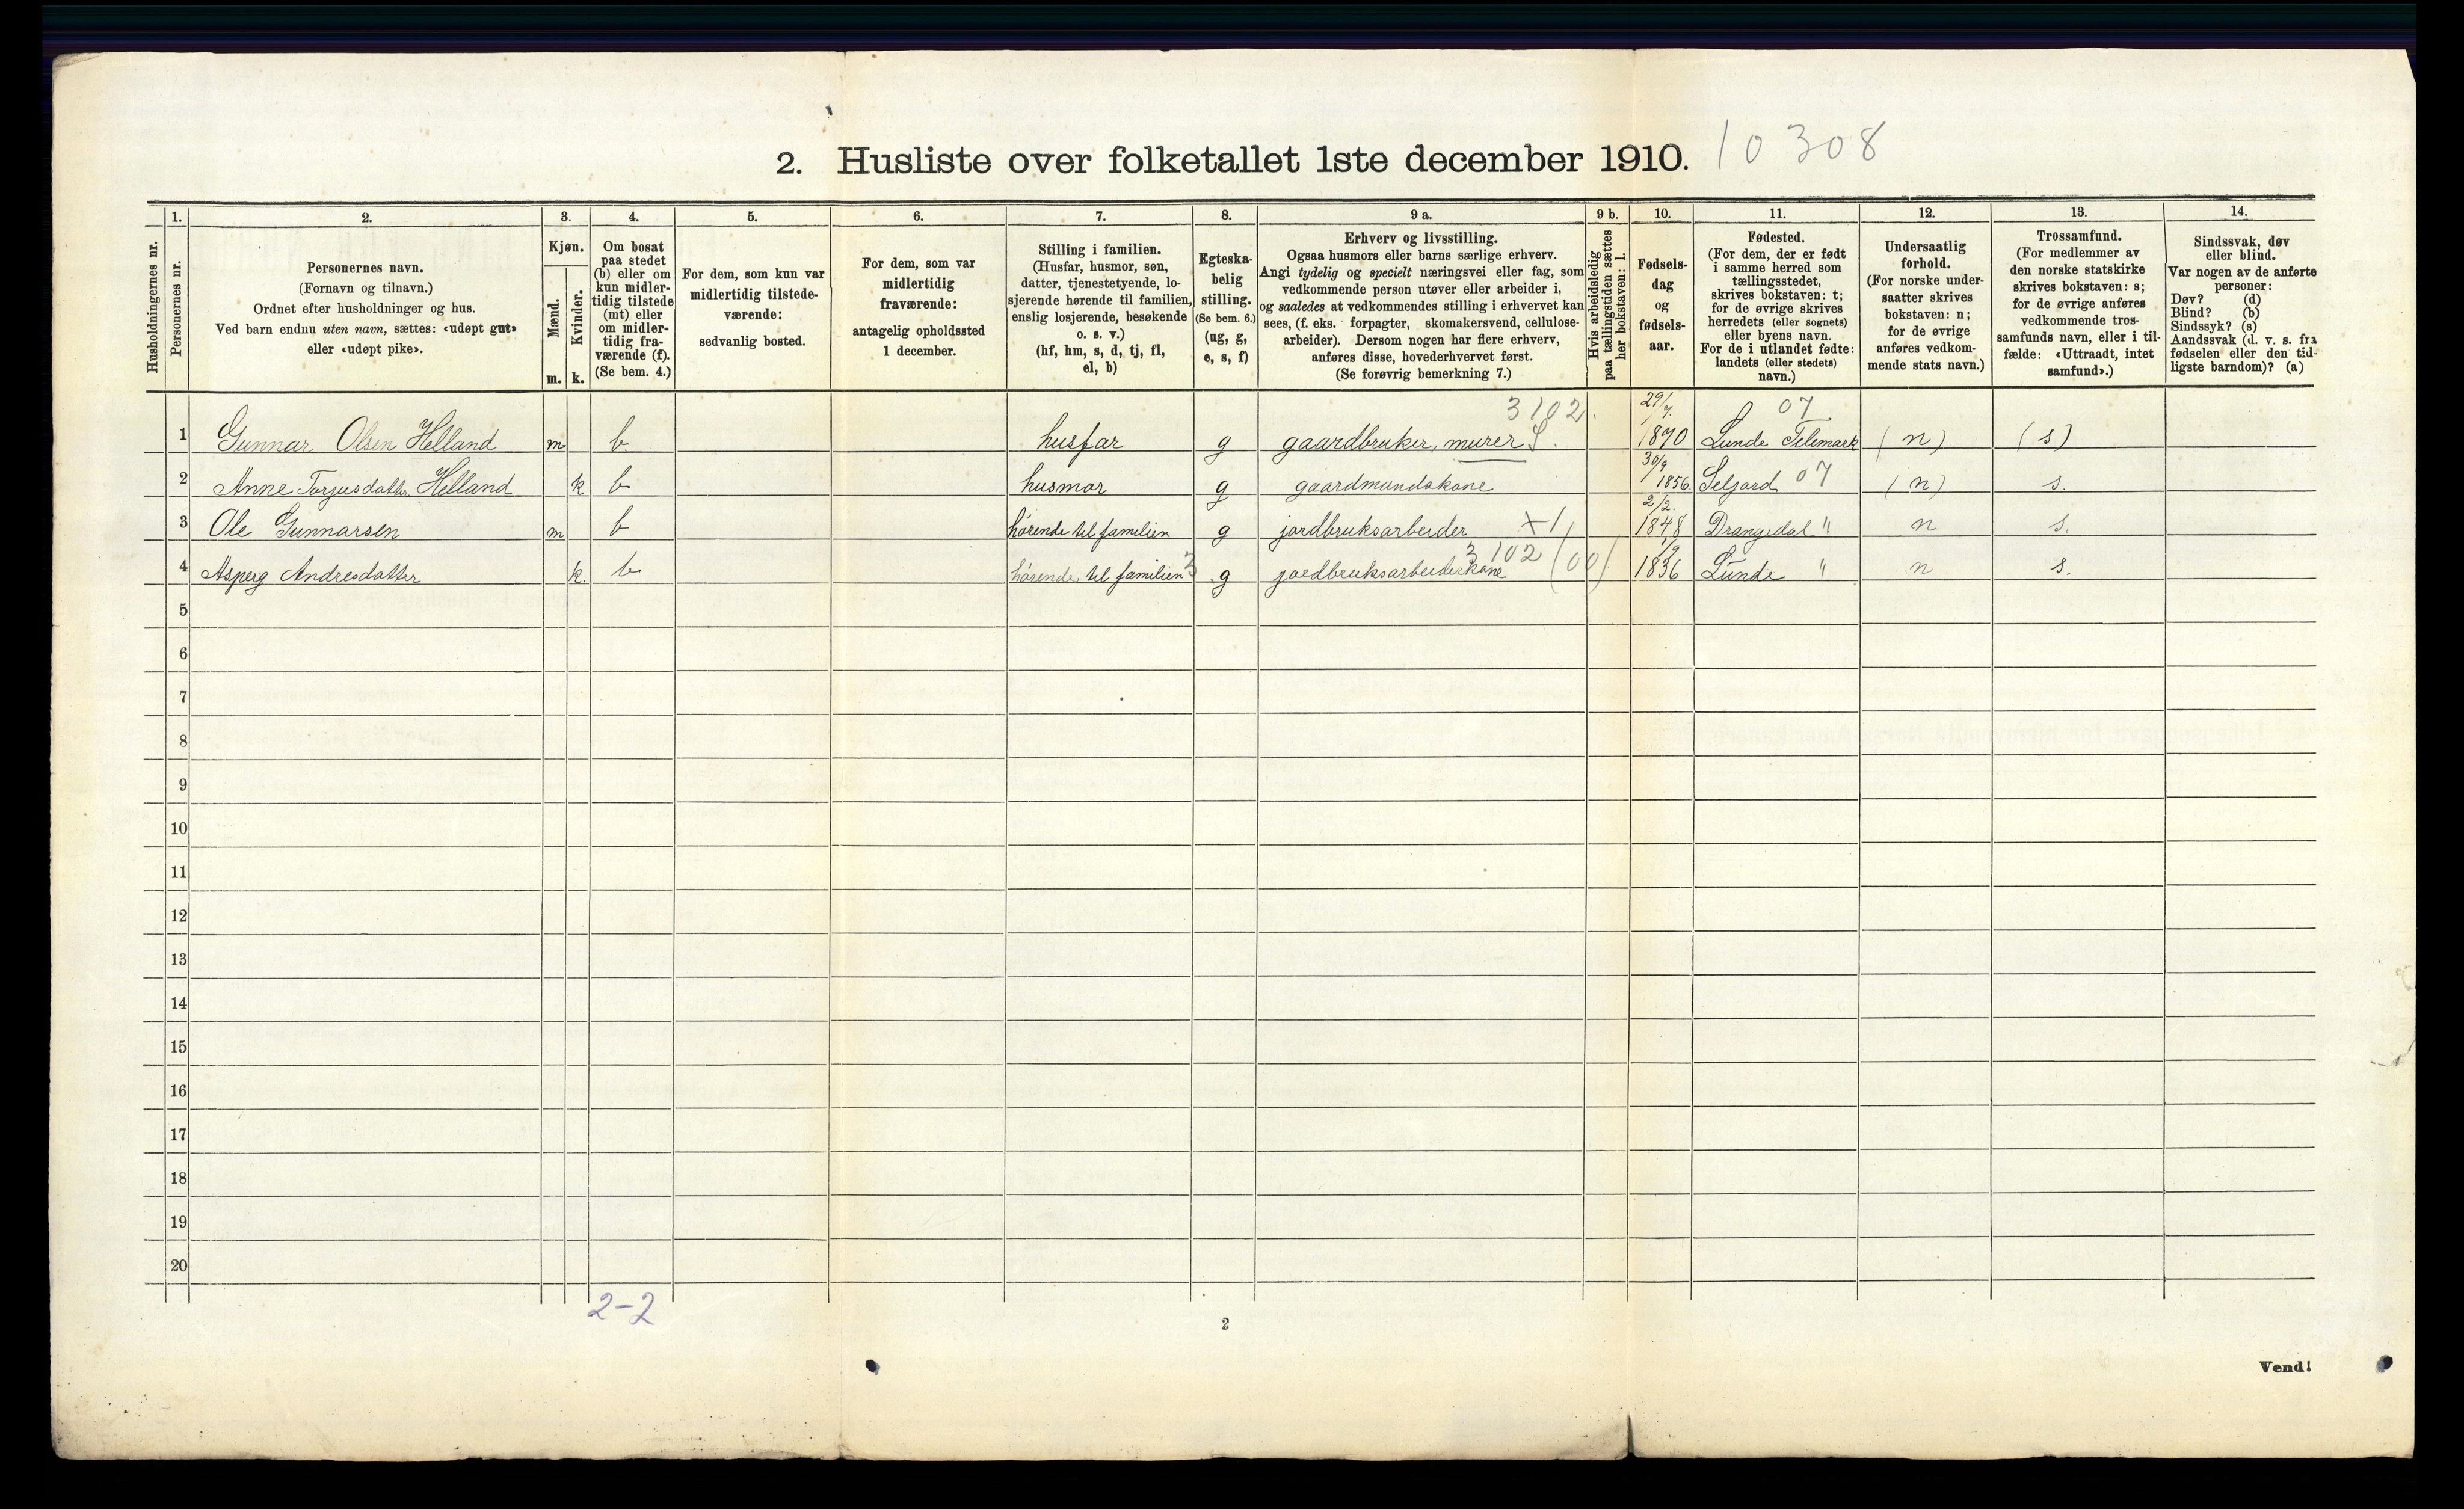 2. Husliste over folketallet 1ste december 1910. 10308
Husholdningernes nr.
1.
Personernes nr.
2.
Personernes navn.
(Fornavn og tilnavn.)
Ordnet efter husholdninger og hus.
Ved barn endnu uten navn, sættes: «udøpt gut»
eller «udøpt pike».
3.
Kjøn.
Mænd.
Kvinder.
m. k.
4.
Om bosat
paa stedet
(b) eller om
kun midler-
tidig tilstede
(mt) eller
om midler-
tidig fra-
værende (f).
(Se bem. 4.)
5.
For dem, som kun var
midlertidig tilstede-
værende:
sedvanlig bosted.
6.
For dem, som var
midlertidig
fraværende:
antagelig opholdssted
1 december.
7.
Stilling i familien.
(Husfar, husmor, søn,
datter, tjenestetyende, lo-
sjerende hørende til familien,
enslig losjerende, besøkende
o. s. v.)
(hf, hm, s, d, tj, fl,
el, b)
8.
Egteska-
belig
stilling.
(Se bem. 6.)
(ug, g,
e, s, f)
9 a.
Erhverv og livsstilling.
Ogsaa husmors eller barns særlige erhverv.
Angi tydelig og specielt næringsvei eller fag, som
vedkommende person utøver eller arbeider i,
og saaledes at vedkommendes stilling i erhvervet kan
sees, (f. eks. forpagter, skomakersvend, cellulose-
arbeider). Dersom nogen har flere erhverv,
anføres disse, hovederhvervet først.
(Se forøvrig bemerkning 7.)
9 b.
Hvis arbeidsledig
paa tællingstiden sættes
her bokstaven: l.
10.
Fødsels-
dag
og
fødsels-
aar.
11.
Fødested.
(For dem, der er født
i samme herred som
tællingsstedet,
skrives bokstaven: t;
for de øvrige skrives
herredets (eller sognets)
eller byens navn.
For de i utlandet fødte:
landets (eller stedets)
navn.)
12.
Undersaatlig
forhold.
(For norske under-
saatter skrives
bokstaven: n;
for de øvrige
anføres vedkom-
mende stats navn.)
13.
Trossamfund.
(For medlemmer av
den norske statskirke
skrives bokstaven: s;
for de øvrige anføres
vedkommende tros-
samfunds navn, eller i til-
fælde: «Uttraadt, intet
samfund».)
14.
Sindssvak, døv
eller blind.
Var nogen av de anførte
personer:
Døv? (d)
Blind? (b)
Sindssyk? (s)
Aandssvak (d. v. s. fra
fødselen eller den tid-
ligste barndom)? (a)
3102. 29/7. 07
1 Gunnar Olsen Helland m b. husfar g gaardbruker, murer S. 1870 Lunde Telemark (n) (s)
30/9
2 Anne Torjusdatter Helland k b husmor g gaardmundskone 1856. Seljord 07 (n) s.
2/2.
3 Ole Gunnarsen m b hørende til familien g jordbruksarbeider x1 1848 Drangedal " n s.
3 3102 (00)
4 Asperg Andresdatter k. b hørende til familien g jordbruksarbeiderkone 1836 Lunde " n s.
5
6
7
8
9
10
11
12
13
14
15
16
17
18
19
20
2-2
2
Vend!